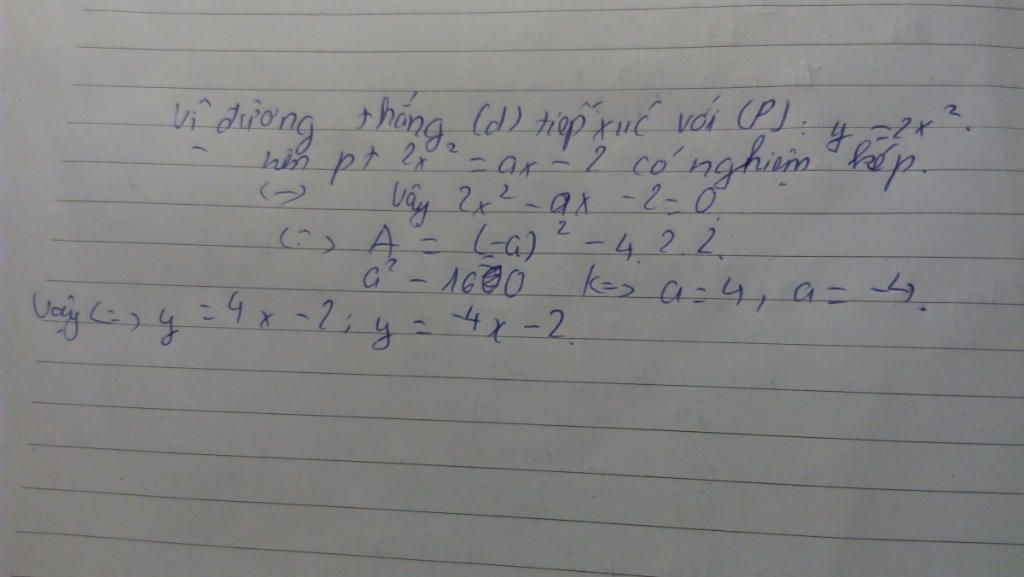 Vì đường thẳng (d) tiếp xúc với (P): y = 2x².
nên pt 2x² = ax - 2 có nghiệm kép.
<=> Vậy 2x² - ax - 2 = 0.
<=> Δ = (-a)² - 4.2.2.
a² - 16 = 0 <=> a = 4, a = -4.
Vậy <=> y = 4x - 2; y = -4x - 2.